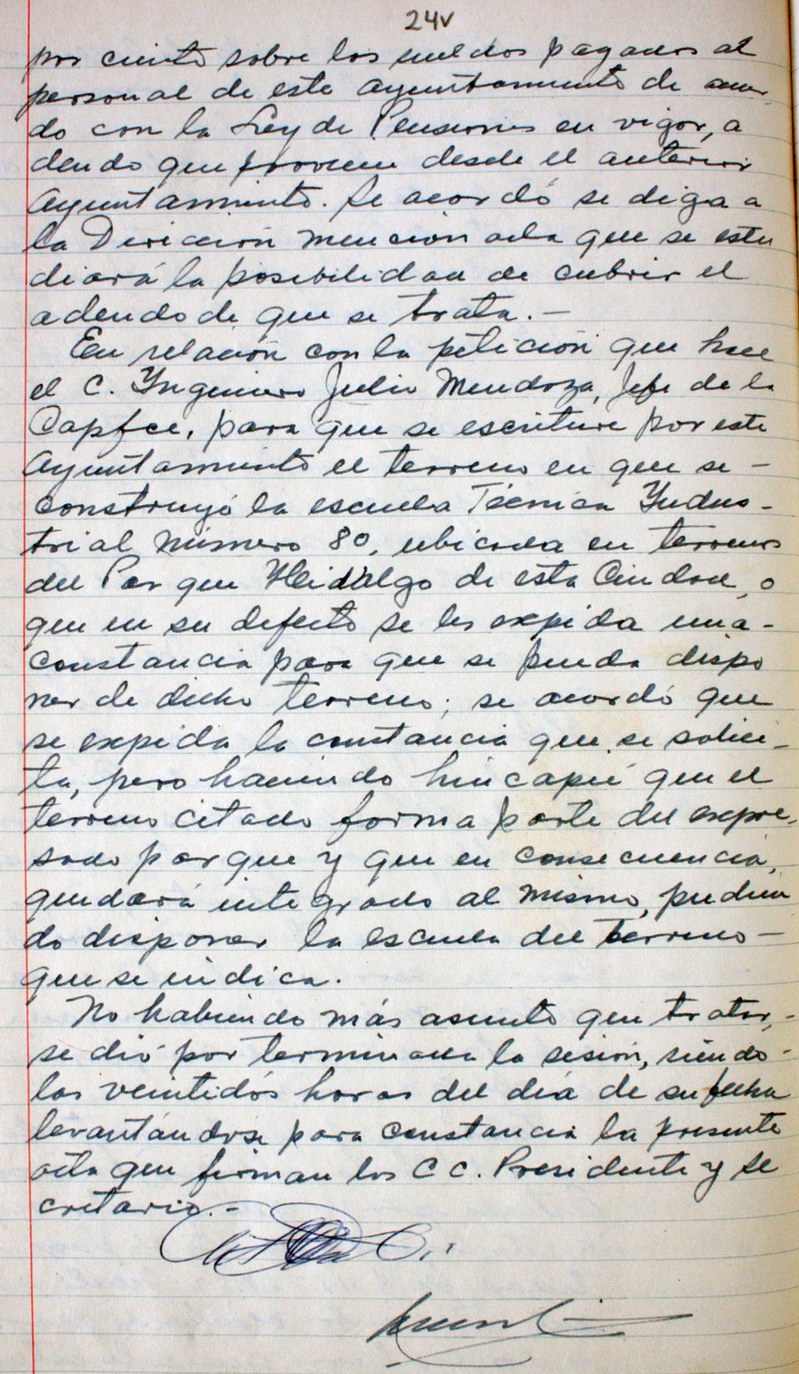 24v
por ciento sobre los sueldos pagados al
personal de este Ayuntamiento de acuer-
do con la Ley de Pensiones en vigor, a
deudo que proviene desde el anterior
Ayuntamiento. Se acordó se diga a
la Dirección mencionada que se estu
diará la posibilidad de cubrir el
adeudo de que se trata.-
En relación con la petición que hace
el C. Yngeniero Julio Mendoza, Jefe de la
Capfce, para que se escriture por este
Ayuntamiento el terreno en que se-
construyó la escuela Técnica Yndus-
trial Número 80, ubicada en terrenos
del Parque Hidalgo de esta Ciudad, o
que en su defecto se les expida una-
constancia para que se pueda dispo
ner de dicho terreno; se acordó que
se expida la constancia que se solici-
ta, pero haciendo hincapié que el
terreno citado forma parte del expre-
sado parque y que en consecuencia,
quedará integrado al mismo, pudien
do disponer la escuela del terreno-
que se indica.
No habiendo más asunto que tratar,-
se dió por terminada la sesión, siendo-
las veintidós horas del día de su fecha
levantándose para constancia la presente
acta que firman los C C. Presidente y Se
cretario.-